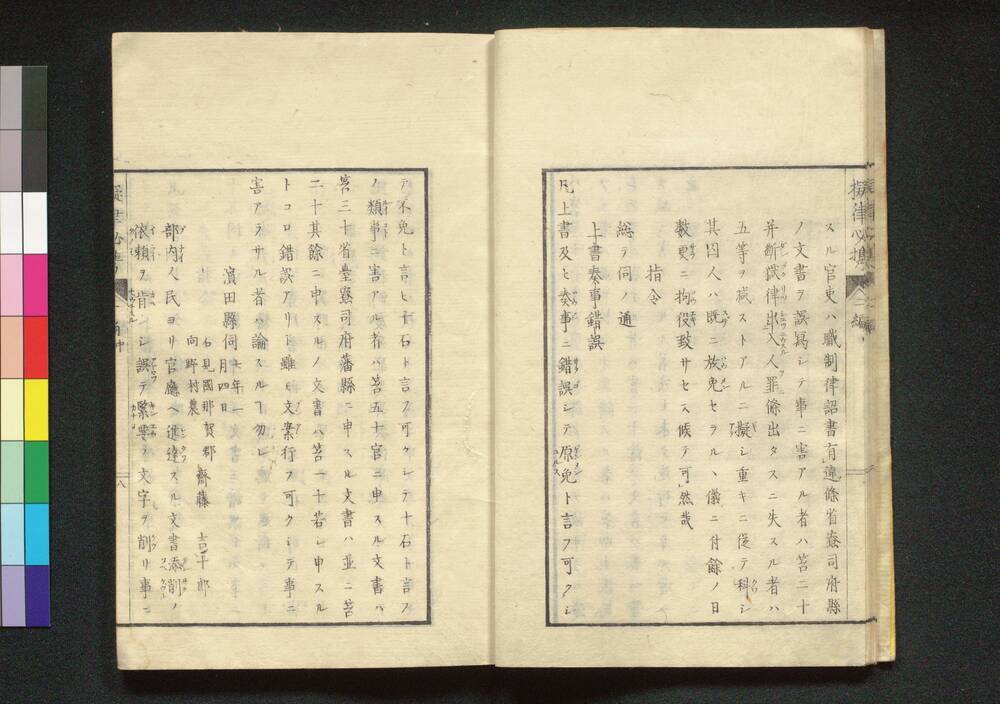 擬律必携
二編
スル官吏ハ職制律詔書有違條省寮司府縣
ノ文書ヲ誤寫シテ事ニ害アル者ハ笞二十
并断獄律出入人罪條出タスニ失スル者ハ
五等ヲ減ストアルニ擬シ重キニ從テ科シ
其囚人ハ既ニ放免セラル、儀ニ付餘ノ日
數更ニ拘役致サセス候テ可然哉
指令
総テ伺ノ通
上書奏事錯誤
凡上書及ヒ奏事ニ錯誤シテ原免ト言フ可クシ
テ不免ト言ヒ千石ト言フ可クシテ十石ト言フ
ノ類事ニ害アル者ハ笞五十官ニ申スル文書ハ
笞三十省臺寮司府藩縣ニ申スル文書ハ並ニ笞
二十其餘ニ申スルノ文書ハ笞一十若シ申スル
トコロ錯誤アリト雖モ文案行フ可クシテ事ニ
害アラサル者ハ論スルヿ勿レ
濱田縣伺 七年一月四日
石見國那賀郡
向野村農
齋藤
部内人民ヨリ官廳ヘ進達スル文書添削ノ
依頼ヲ肯シ誤テ緊要ノ文字ヲ削リ事ニ
八